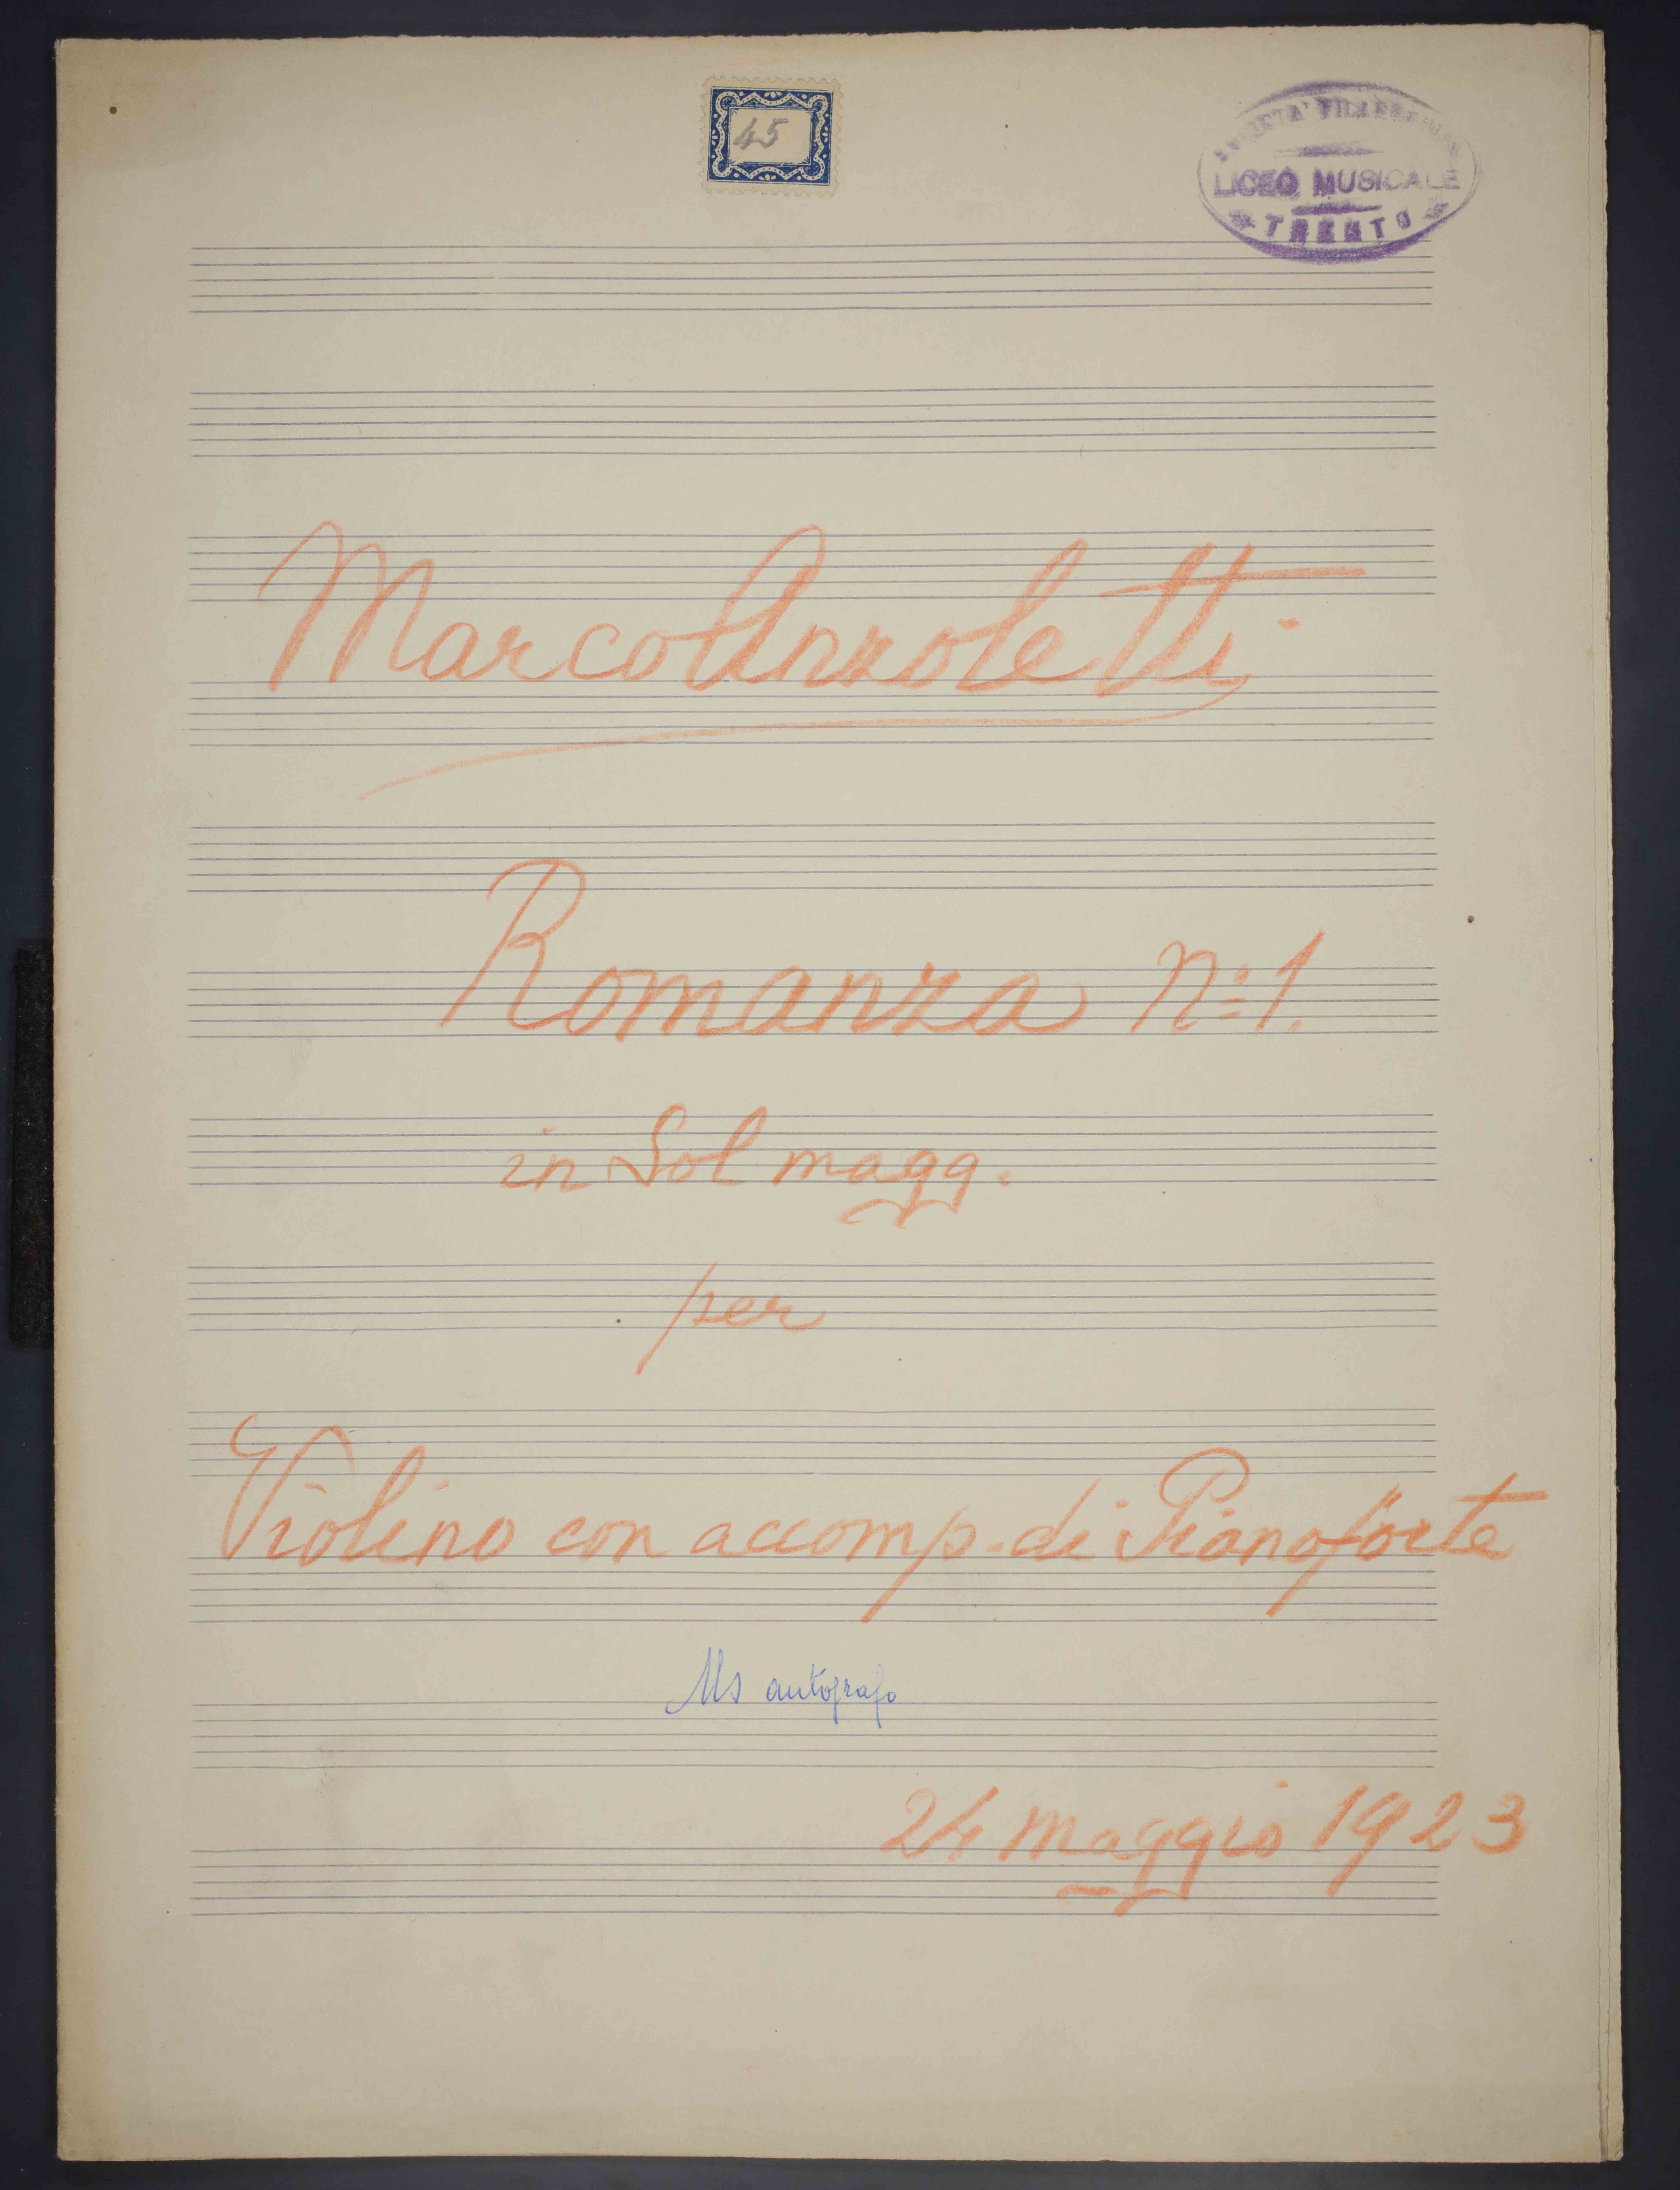 45
LICEO MUSICALE
TRENTO
Marco Anzoletti
Romanza N: 1.
in Sol magg.
per
Violino con accomp. di Pianoforte
Ms autografo
24 maggio 1923